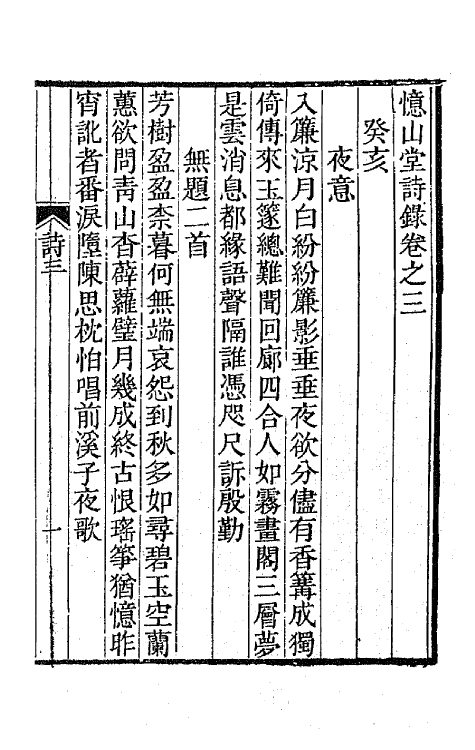 憶山堂詩錄卷之三
癸亥
夜意
入簾涼月白紛紛簾影垂垂夜欲分儘有香篝成獨
倚傳來玉篴總難聞回廊四合人如霧畫閣三層夢
是雲消息都緣語聲隔誰憑咫尺訴殷勤
無題二首
芳樹盈盈柰暮何無端哀怨到秋多如尋碧玉空蘭
蕙欲問靑山杳薜蘿璧月幾成終古恨瑤箏猶憶昨
宵訛者番淚墮陳思枕怕唱前溪子夜歌
詩三
一